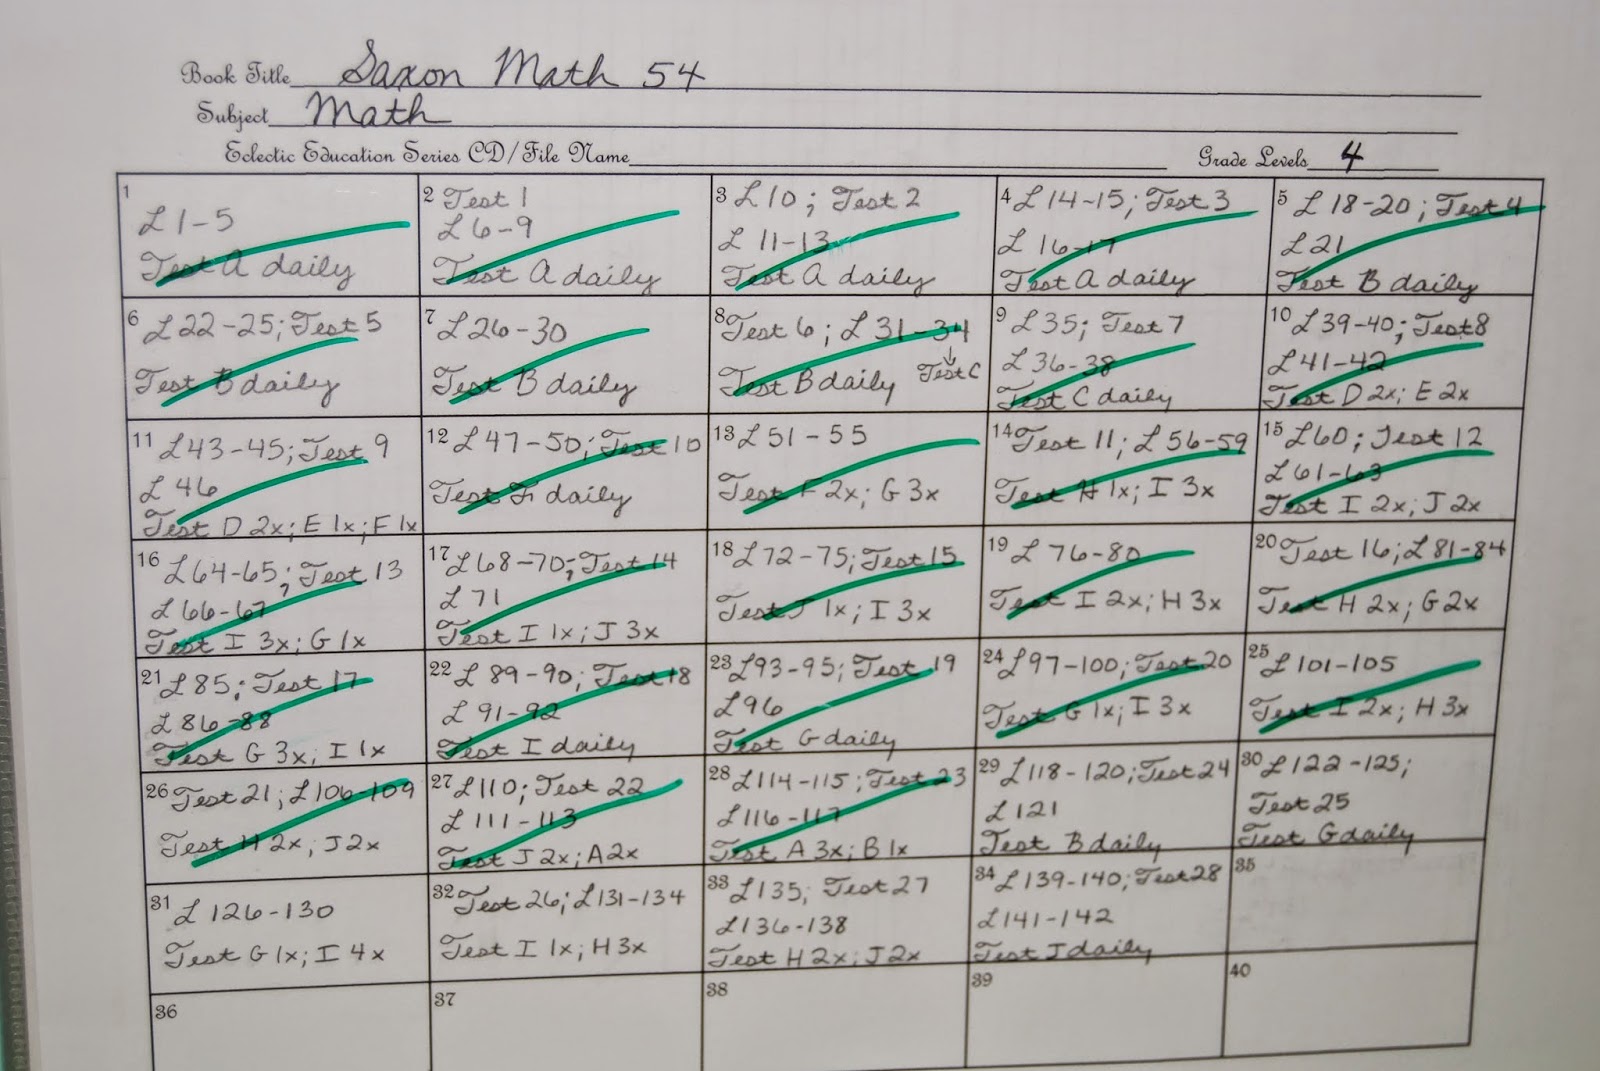 Book Title Saxon Math 54
Subject Math
Eclectic Education Series CD/File Name Grade Levels 4
1
L 1-5
Test A daily
2 Test 1
L 6-9
Test A daily
3 L 10; Test 2
L 11-13
Test A daily
4 L 14-15; Test 3
L 16-17
Test A daily
5 L 18-20; Test 4
L 21
Test B daily
6 L 22-25; Test 5
Test B daily
7 L 26-30
Test B daily
8 Test 6; L 31-34
Test B daily Test C
9 L 35; Test 7
L 36-38
Test C daily
10 L 39-40; Test 8
L 41-42
Test D 2x; E 2x
11 L 43-45; Test 9
L 46
Test D 2x; E 1x; F 1x
12 L 47-50; Test 10
Test F daily
13 L 51-55
Test F 2x; G 3x
14 Test 11; L 56-59
Test H 1x; I 3x
15 L 60; Test 12
L 61-63
Test I 2x; J 2x
16 L 64-65; Test 13
L 66-67
Test I 3x; G 1x
17 L 68-70; Test 14
L 71
Test I 1x; J 3x
18 L 72-75; Test 15
Test J 1x; I 3x
19 L 76-80
Test I 2x; H 3x
20 Test 16; L 81-84
Test H 2x; G 2x
21 L 85; Test 17
L 86-88
Test G 3x, I 1x
22 L 89-90; Test 18
L 91-92
Test I daily
23 L 93-95; Test 19
L 96
Test G daily
24 L 97-100; Test 20
Test G 1x; I 3x
25 L 101-105
Test I 2x; H 3x
26 Test 21; L 106-109
Test H 2x, J 2x
27 L 110; Test 22
L 111-113
Test J 2x; A 2x
28 L 114-115; Test 23
L 116-117
Test A 3x; B 1x
29 L 118-120; Test 24
L 121
Test B daily
30 L 122-125;
Test 25
Test G daily
31 L 126-130
Test G 1x; I 4x
32 Test 26; L 131-134
Test I 1x; H 3x
33 L 135; Test 27
L 136-138
Test H 2x; J 2x
34 L 139-140; Test 28
L 141-142
Test J daily
35
36
37
38
39
40